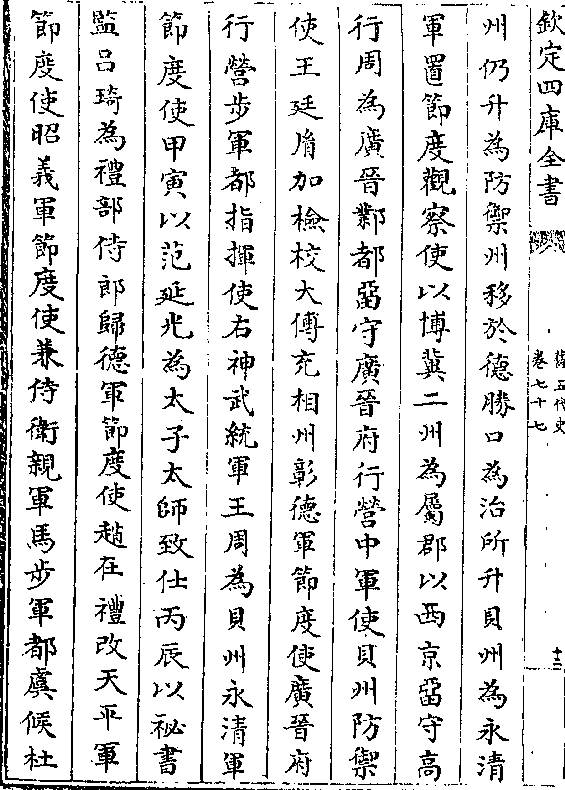 欽定四庫全書
舊五代史
卷七十七
十三
州仍升為防禦州移於德勝口為治所升貝州為永清
軍置節度觀察使以博冀二州為屬郡以西京畱守高
行周為廣晉鄴都畱守廣晉府行營中軍使貝州防禦
使王廷胤加檢校大傅充相州彰德軍節度使廣晉府
行營步軍都指揮使右神武統軍王周為貝州永清軍
節度使甲寅以范延光為太子太師致仕丙辰以祕書
監呂琦為禮部侍郎歸德軍節度使趙在禮改天平軍
節度使昭義軍節度使兼侍衛親軍馬步軍都虞候杜